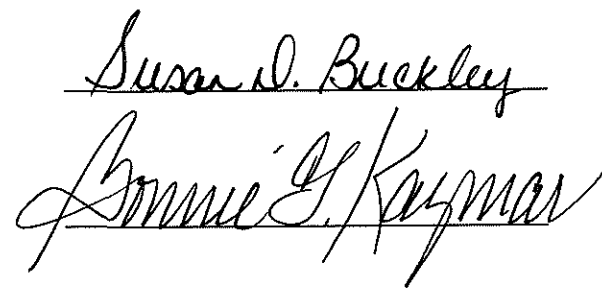 Susan D. Buckley
Bonnie G. Kaymar